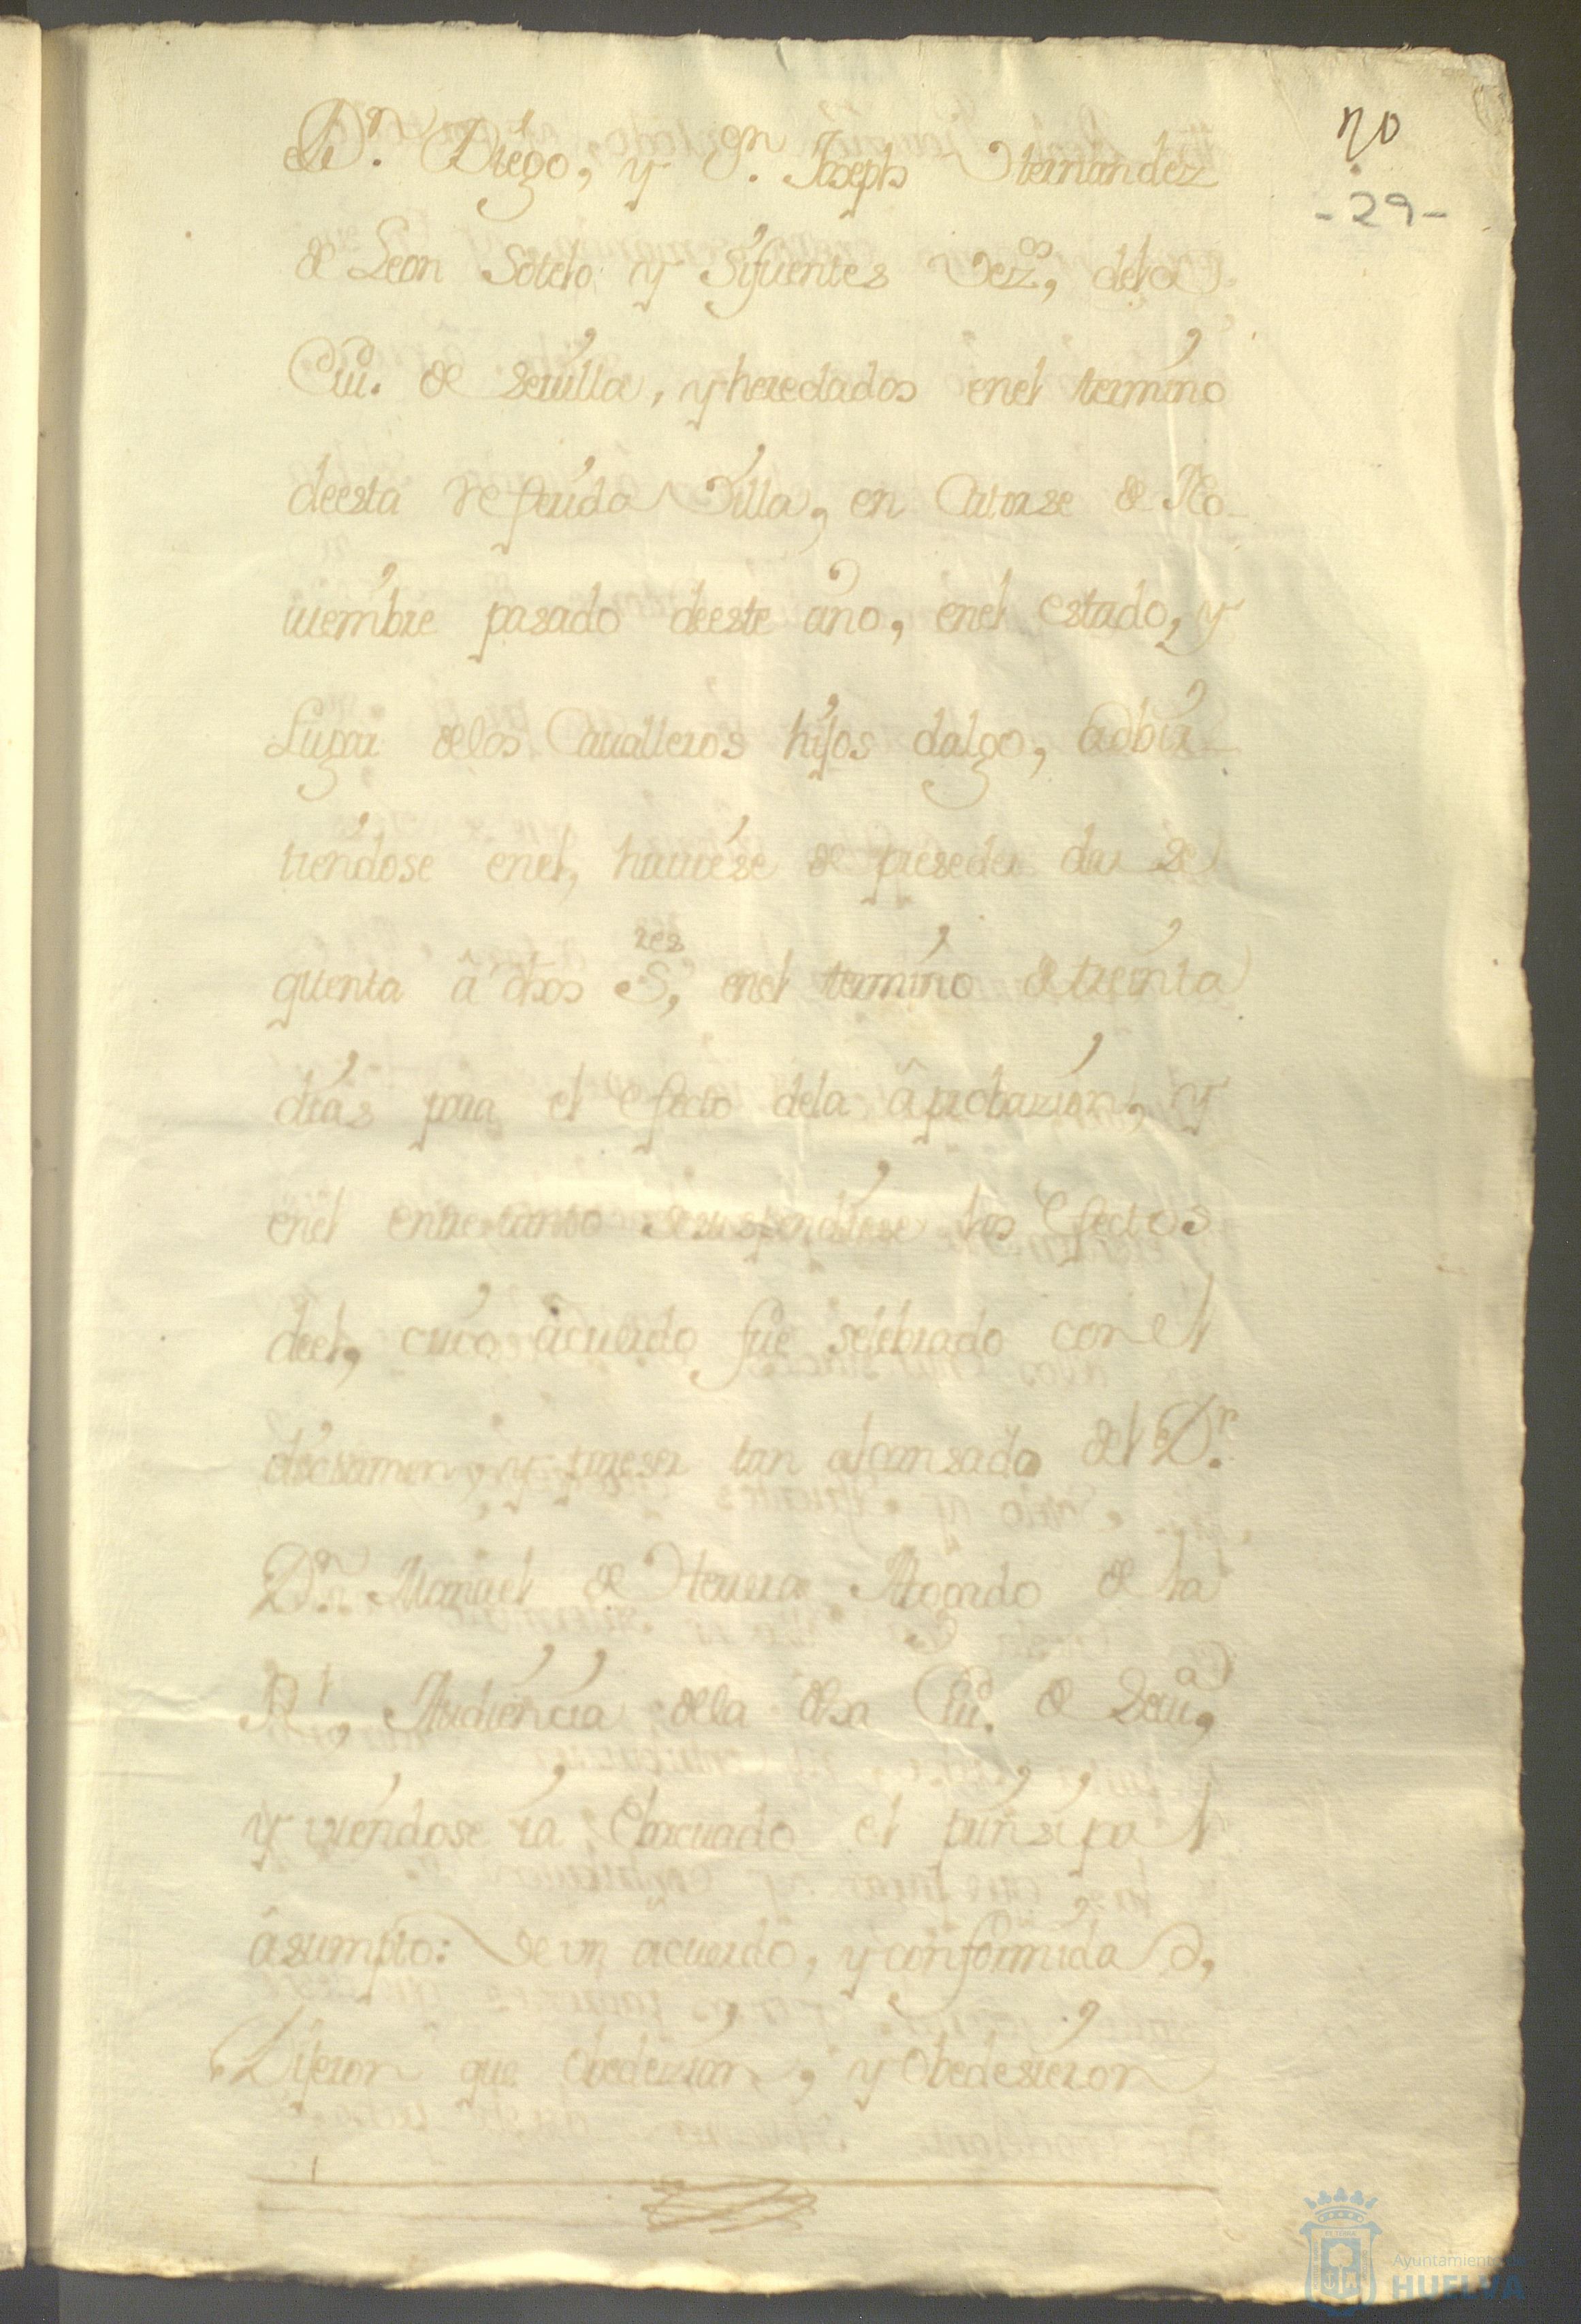 70
-29-
Dn. Diego, y Dn. Joseph Hernandez
de Leon Sotelo y Sifuentes Vezos, dela
Ciud. de sevilla, y heredados enel termino
deesta referida Villa, en Catorse de No-
viembre pasado deeste año, enel estado, y
Lugar delos Cavalleros hijos dalgo, adbir-
tiendose enel, huviese de preseder darse
quenta â dhos Sres, enel termino de treinta
dias para el efecto dela âprobazion, y
enel entre tanto se suspendiese los efectos
deel, cuio acuerdo fue selebrado con el
dictamen, y pareser tan alcansado del Dr.
Dn. Manuel de Herrera Abogado de la
Rl, Audiencia dela dha Ciud. de Sevilla,
y viendose ia el prinsipal
âsumpto: de un acuerdo, y conformidad,
Dijeron que obedezian, y obedesieron
Ayuntamiento de
HUELVA